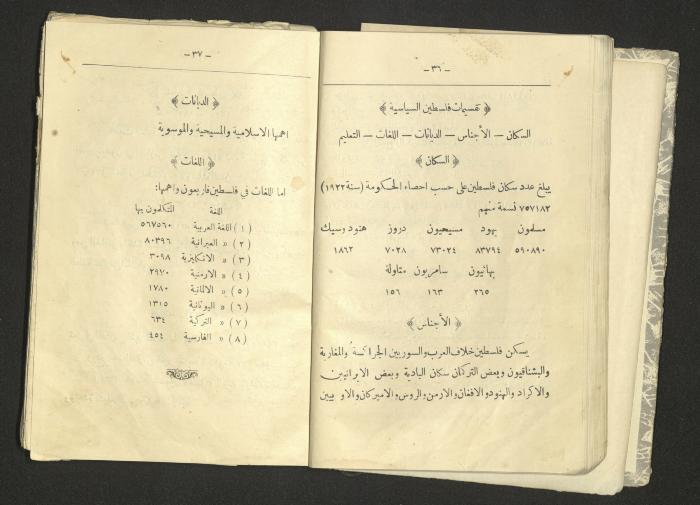 — ٣٦ —
﴿ تقسيمات فلسطين السياسية ﴾
السكان — الأجناس — الديانات — اللغات — التعليم
﴿ السكان ﴾
يبلغ عدد سكان فلسطين على حسب احصاء الحكومة (سنة ١٩٢٢)
٧٥٧١٨٢ نسمة منهم
مسلمون يهود مسيحيون دروز هنود وسيك
٥٩٠٨٩٠ ٨٣٧٩٤ ٧٣٠٢٤ ٧٠٢٨ ١٨٦٢
بهائيون سامريون متاولة
٢٦٥ ١٦٣ ١٥٦
﴿ الأجناس ﴾
يسكن فلسطين خلاف العرب والسوريين الجراكسة والمغاربة
والبشناقيون وبعض التركمان سكان البادية وبعض الايرانيين
والاكراد والهنود والافغان والارمن والروس والاميركان والاو
— ٣٧ —
﴿ الديانات ﴾
اهمها الاسلامية والمسيحية والموسوية
﴿ اللغات ﴾
اما اللغات في فلسطين فاربعون واهمها:
اللغة المتكلمون بها
(١) اللغة العربية ٥٦٧٥٦٠
(٢) « العبرانية ٨٠٣٩٦
(٣) « الانكليزية ٣٠٩٨
(٤) « الارمنية ٢٩٧٠
(٥) « الالمانية ١٧٨٠
(٦) « اليونانية ١٣١٥
(٧) « التركية ٦٣٤
(٨) « الفارسية ٤٥٤